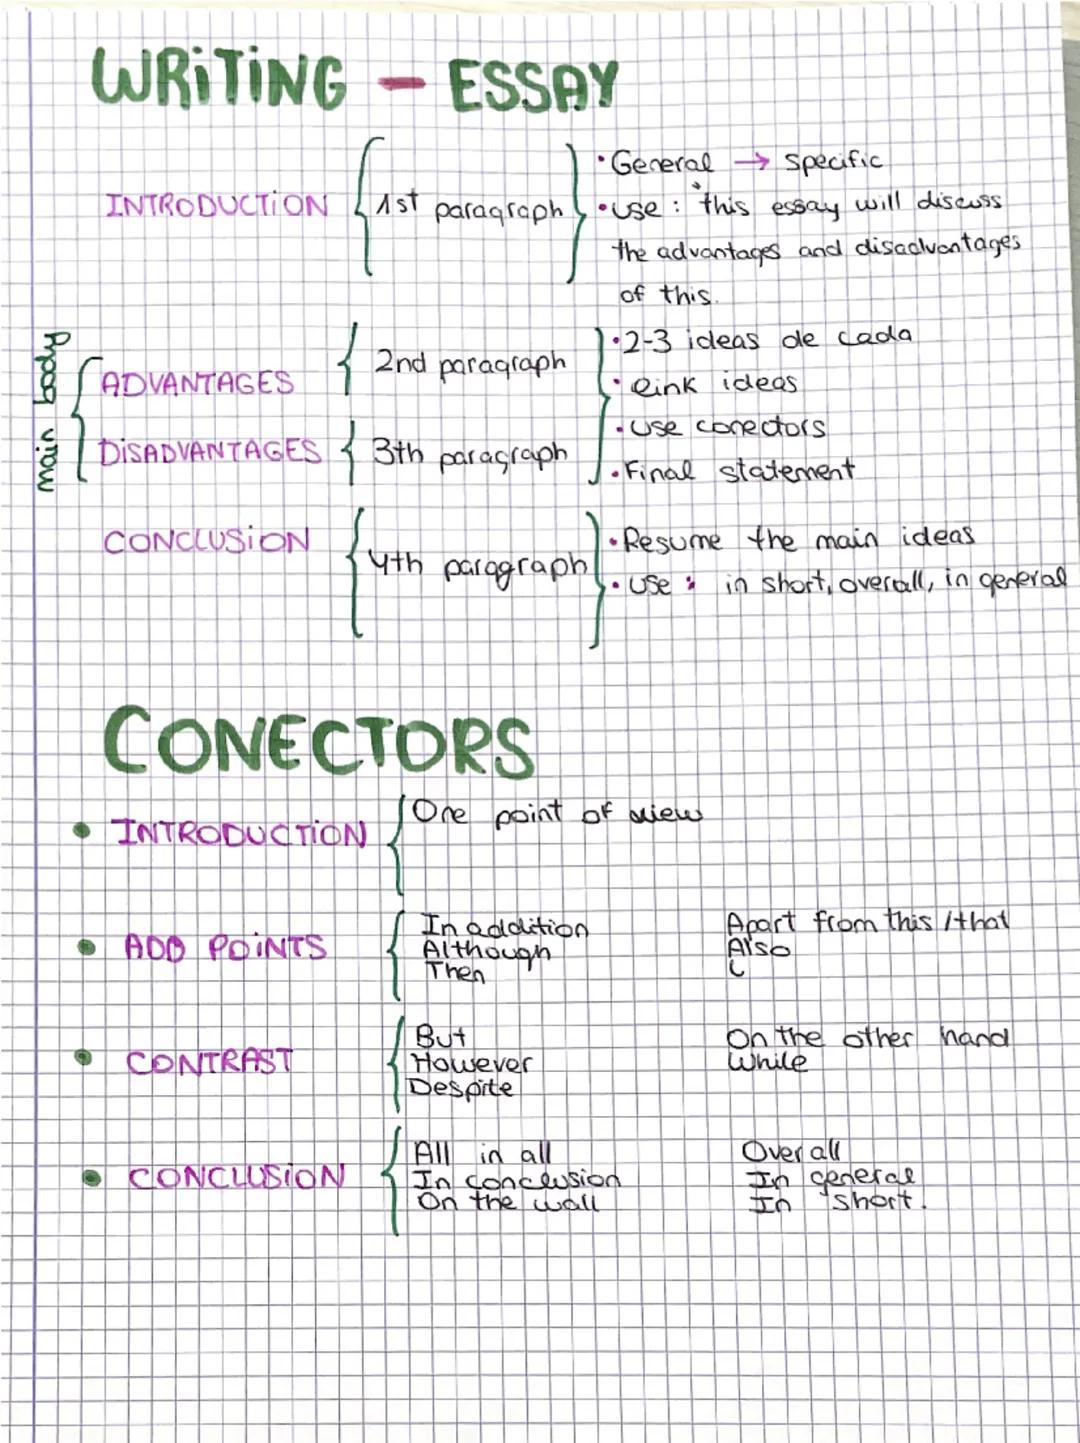 WRiTiNG - ESSAY
INTRODUCTiON 1st paragraph
• General → specific
• use: "this essay will discuss
the advantages and disadvantages
of this.
main body
ADVANTAGES 2nd paragraph
DiSADVANTAGES 3th paragraph
• 2-3 ideas de cada
• link ideas
• use conectors
• Final statement
CONCLUSiON 4th paragraph
• Resume the main ideas
• use: in short, overall, in general
CONECTORS
• INTRODUCTiON One point of view
• ADD POiNTS
In addition Apart from this / that
Although Also
Then
• CONTRAST
But On the other hand
However While
Despite
• CONCLUSiON
All in all Overall
In conclusion In general
On the wall In short.